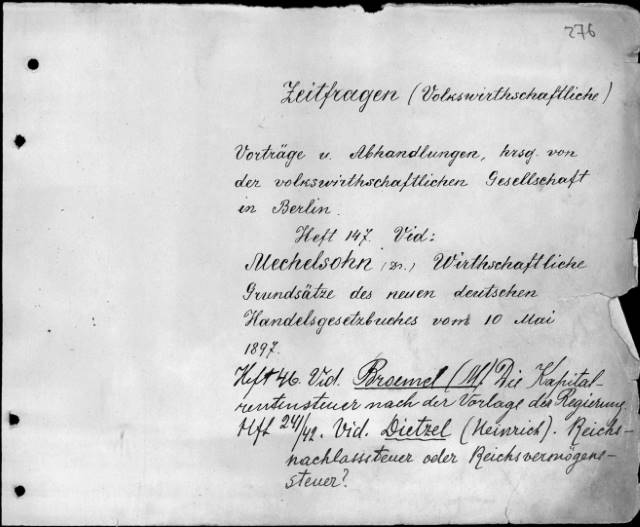 276
Zeitfragen (Volkswirthschaftliche)
Vorträge u. Abhandlungen, hrsg. von
der volkswirthschaftlichen Gesellschaft
in Berlin.
Heft 147. Vid:
Mechelsohn (Dr.) Wirthschaftliche
Grundsätze des neuen deutschen
Handelsgesetzbuches vom 10 Mai
1897.
Heft 46. Vid. Broemel (M) Die Kapital-
rentensteuer nach der Vorlage der Regierung.
Hft 241/42. Vid. Dietzel (Heinrich). Reichs-
nachlasssteuer oder Reichsvermögens-
steuer?